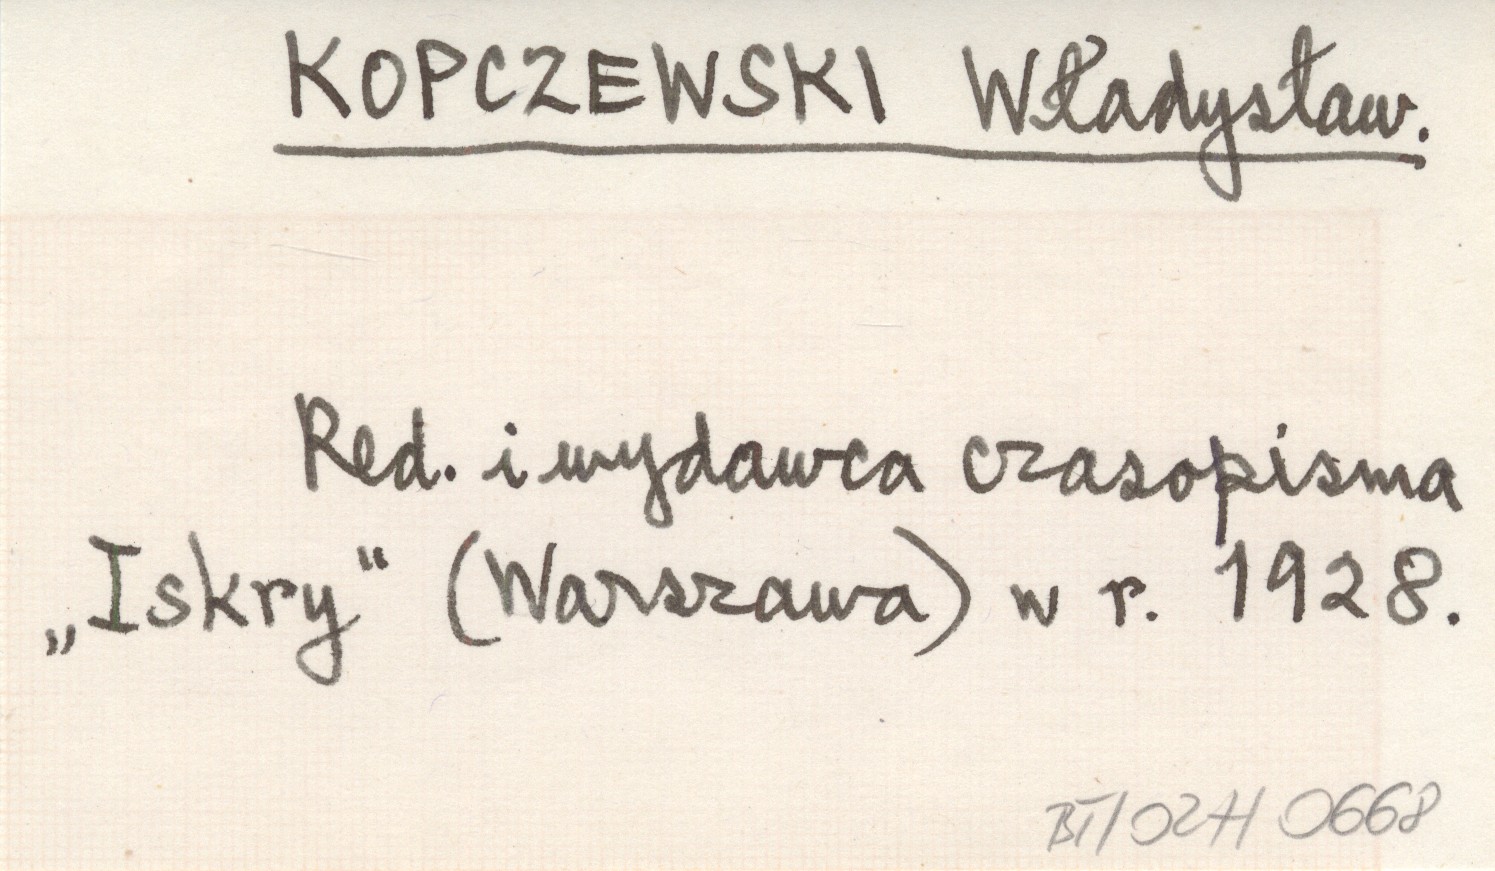 KOPCZEWSKI Władysław.
Red. i wydawca czasopisma
„Iskry" (Warszawa) w r. 1928.
0668